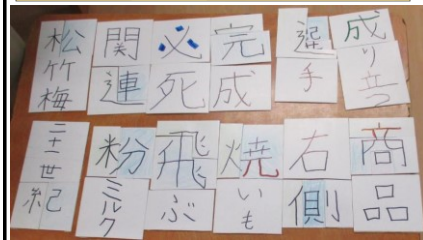 松竹梅
関連
必死
完成
選手
成り立つ
二十一世紀
粉ミルク
飛ぶ
焼いも
右側
商品